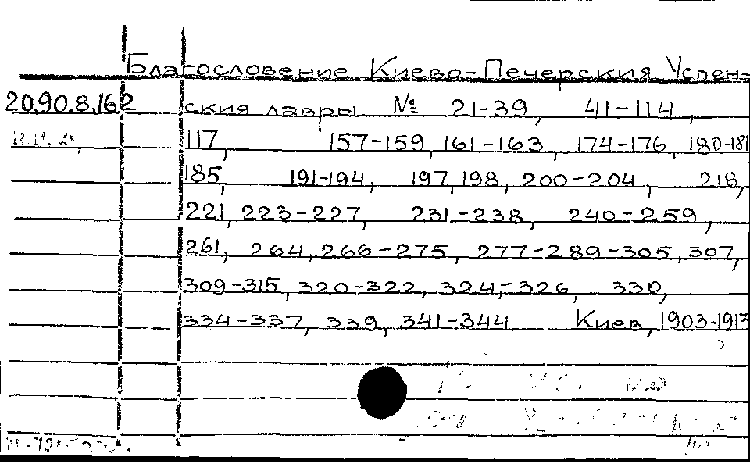 Благословение Киево-Печерския Успен-
20.90.8.162 ския лавры № 21-39, 41-114,
117, 157-159, 161-163, 174-176, 180-181
185, 191-194, 197, 198, 200-204, 218,
221, 223-227, 231-238, 240-259,
261, 264, 266-275, 277-289-305, 307,
309-315, 320-322, 324-326, 330,
334-337, 339, 341-344 Киев, 1903-1913